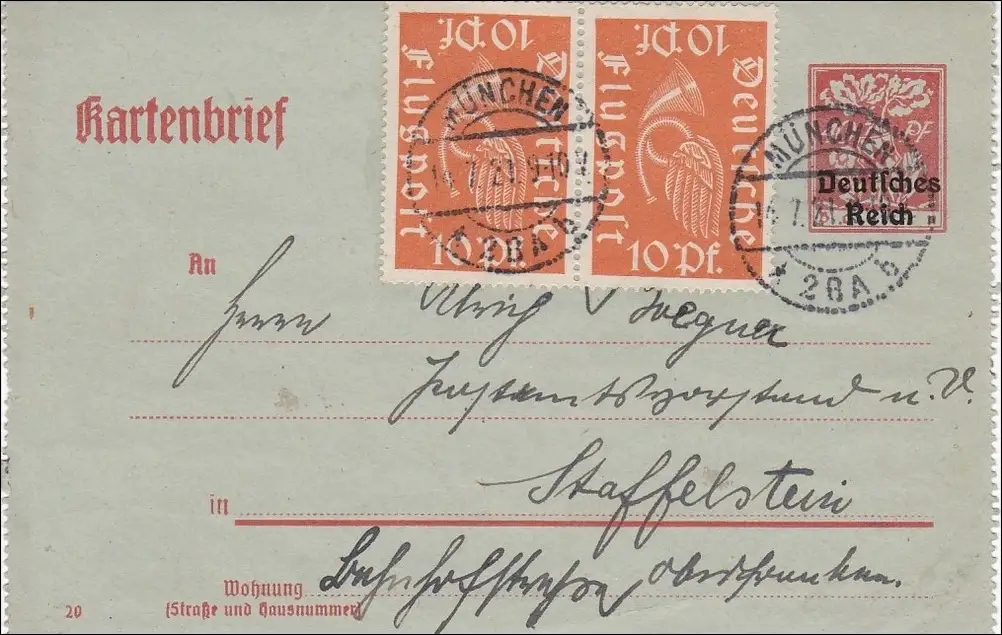 10 Pf.
Deutsche
Flugpost
10 Pf.
10 Pf.
Deutsche
Flugpost
10 Pf.
MÜNCHEN
14.7.21. 9-10
* 2BA b
MÜNCHEN
14.7.21
* 2BA b
Pf
Deutsches
Reich
Kartenbrief
An
Herrn Ulrich Wegner
vorstand
in Staffelstein
Wohnung Bahnhofstraße, Oberfranken.
(Straße und Hausnummer)
20